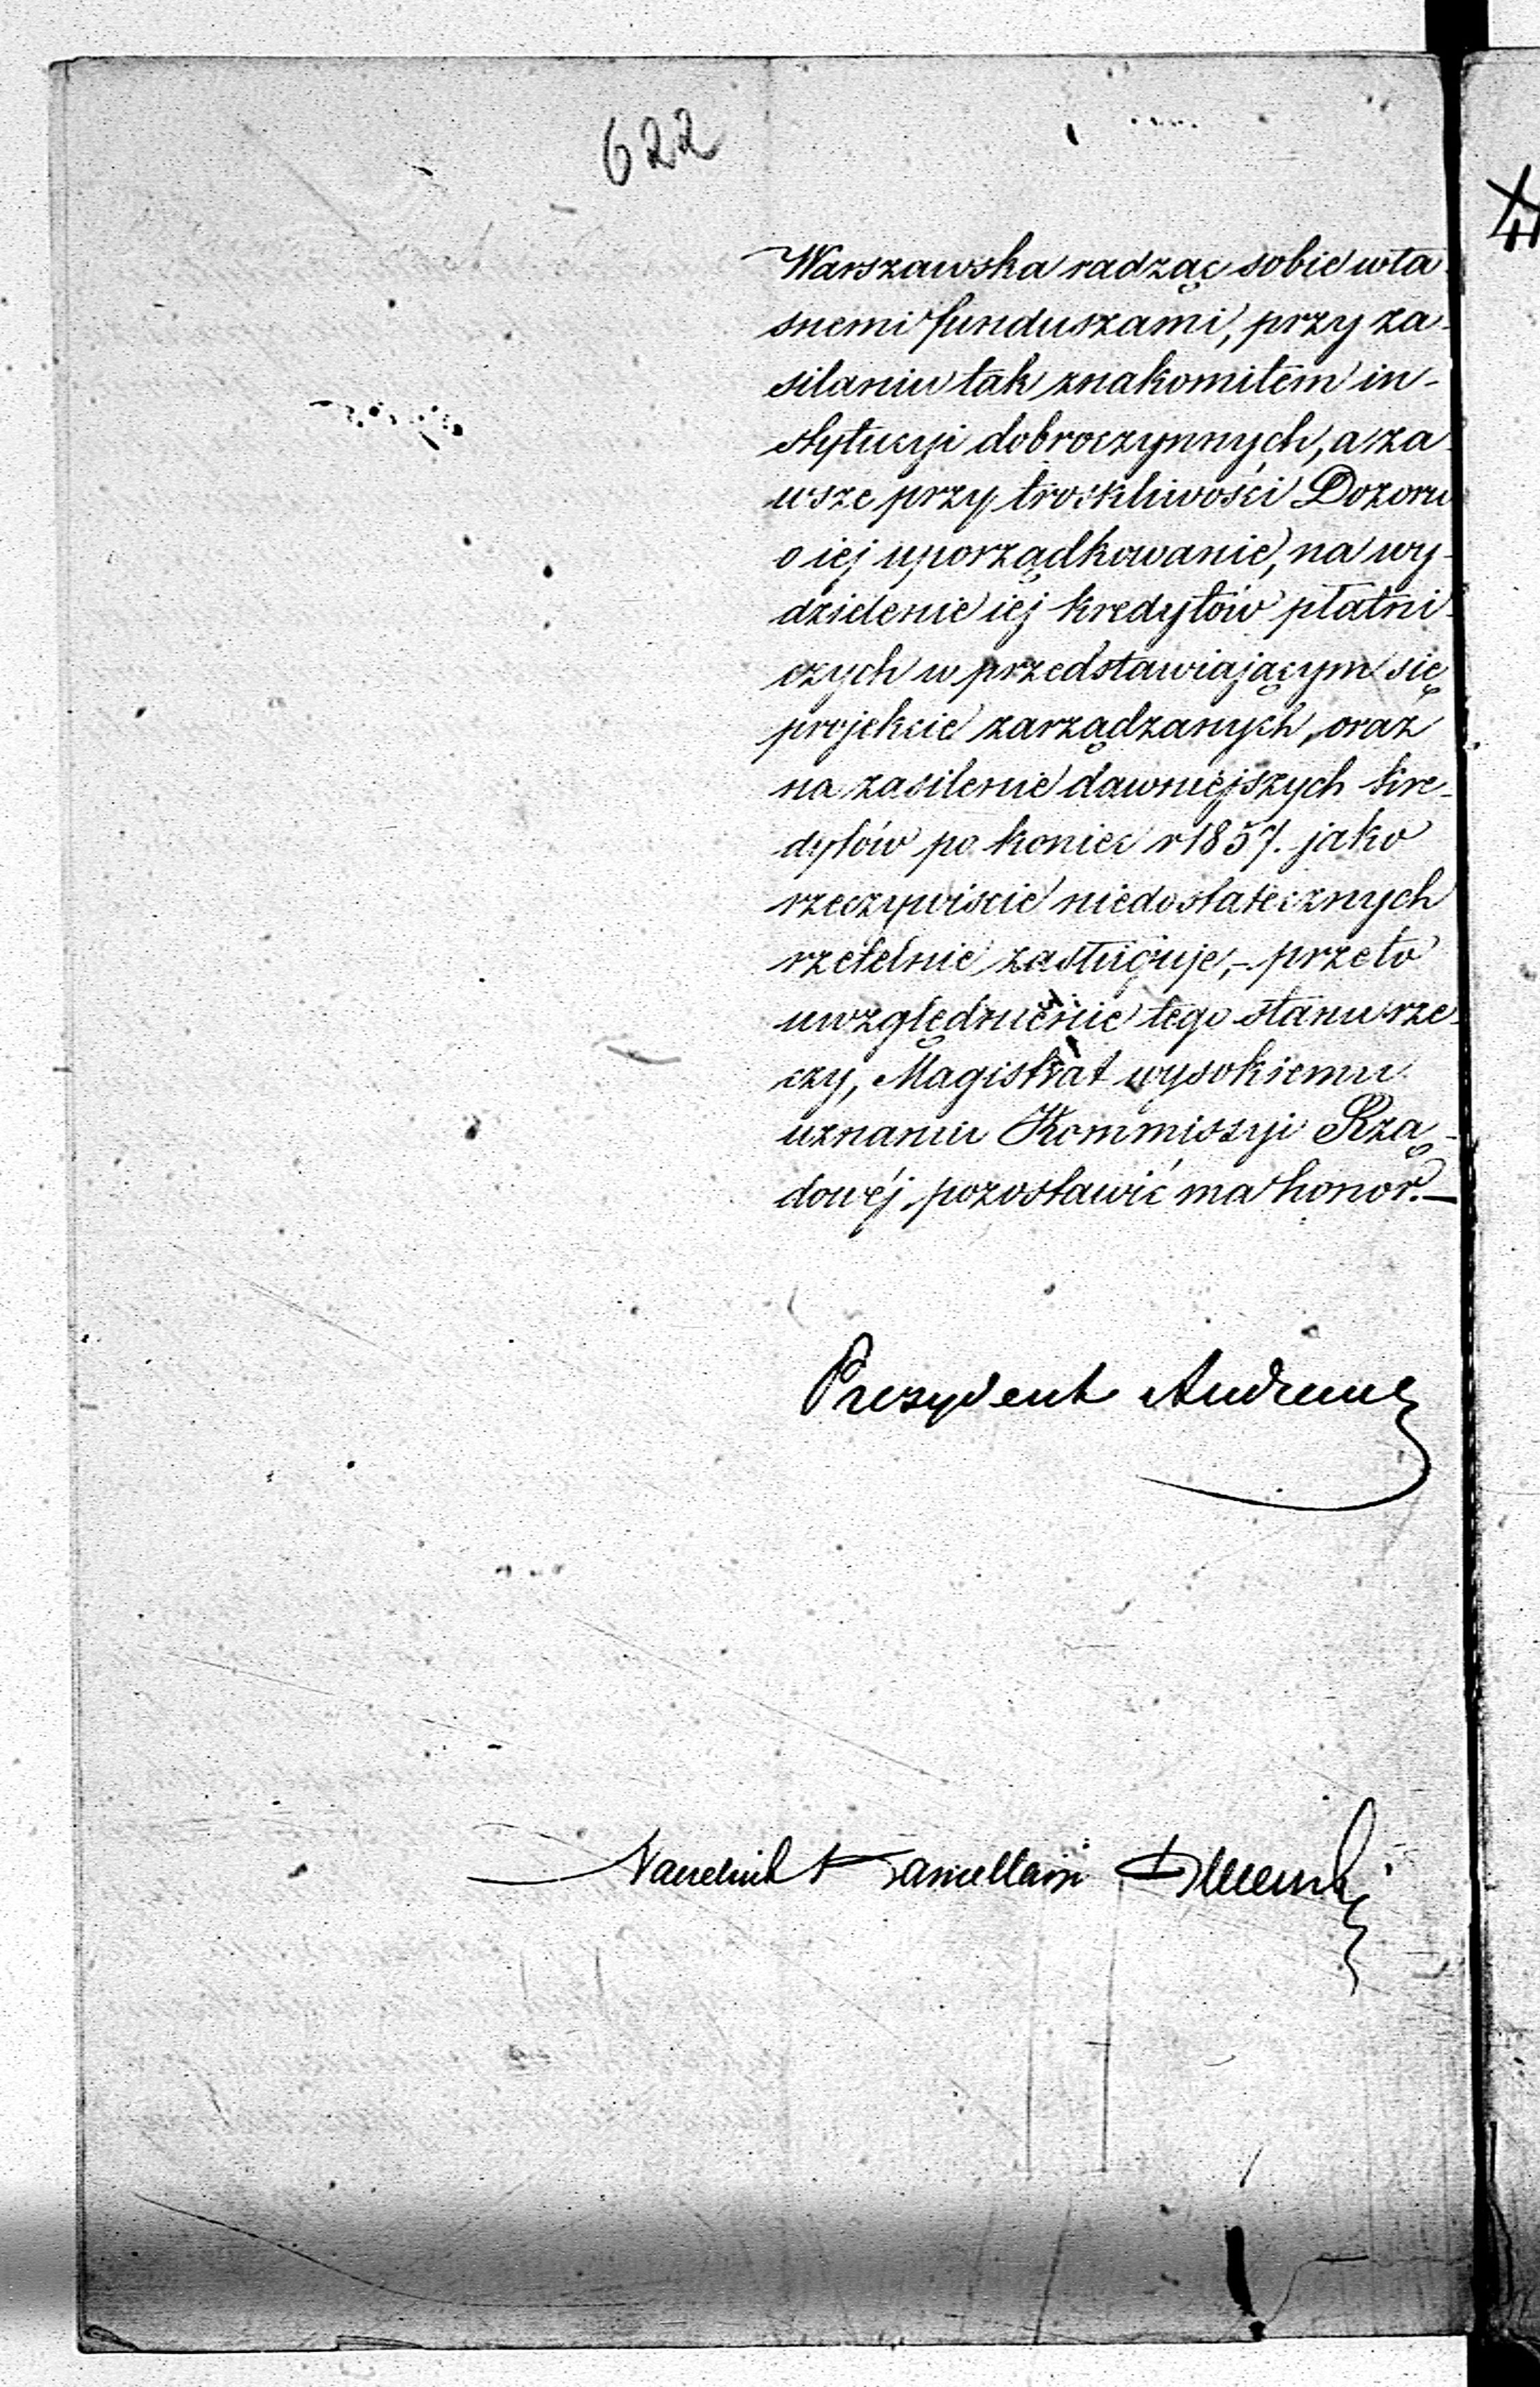 622
Warszawska radząc sobie wła-
snemi funduszami, przy za-
silaniu tak znakomitem in-
stytucyi dobroczynnych, a za-
wsze przy troskliwości Dozoru
o iej uporządkowanie, na wy-
dzielenie iej kredytów płatni-
czych w przedstawiającym się
projekcie zarządzanych, oraz
na zasilenie dawniejszych kre-
dytów po koniec r 1857. jako
rzeczywiście niedostatecznych
rzetelnie zasługuje, - przeto
uwzględnienie tego stanu rze-
czy, Magistrat wysokiemu
uznaniu Kommissyi Rzą-
dowéj pozostawić ma honor. —
Prezydent Andrault
Naczelnik Kancellaryi